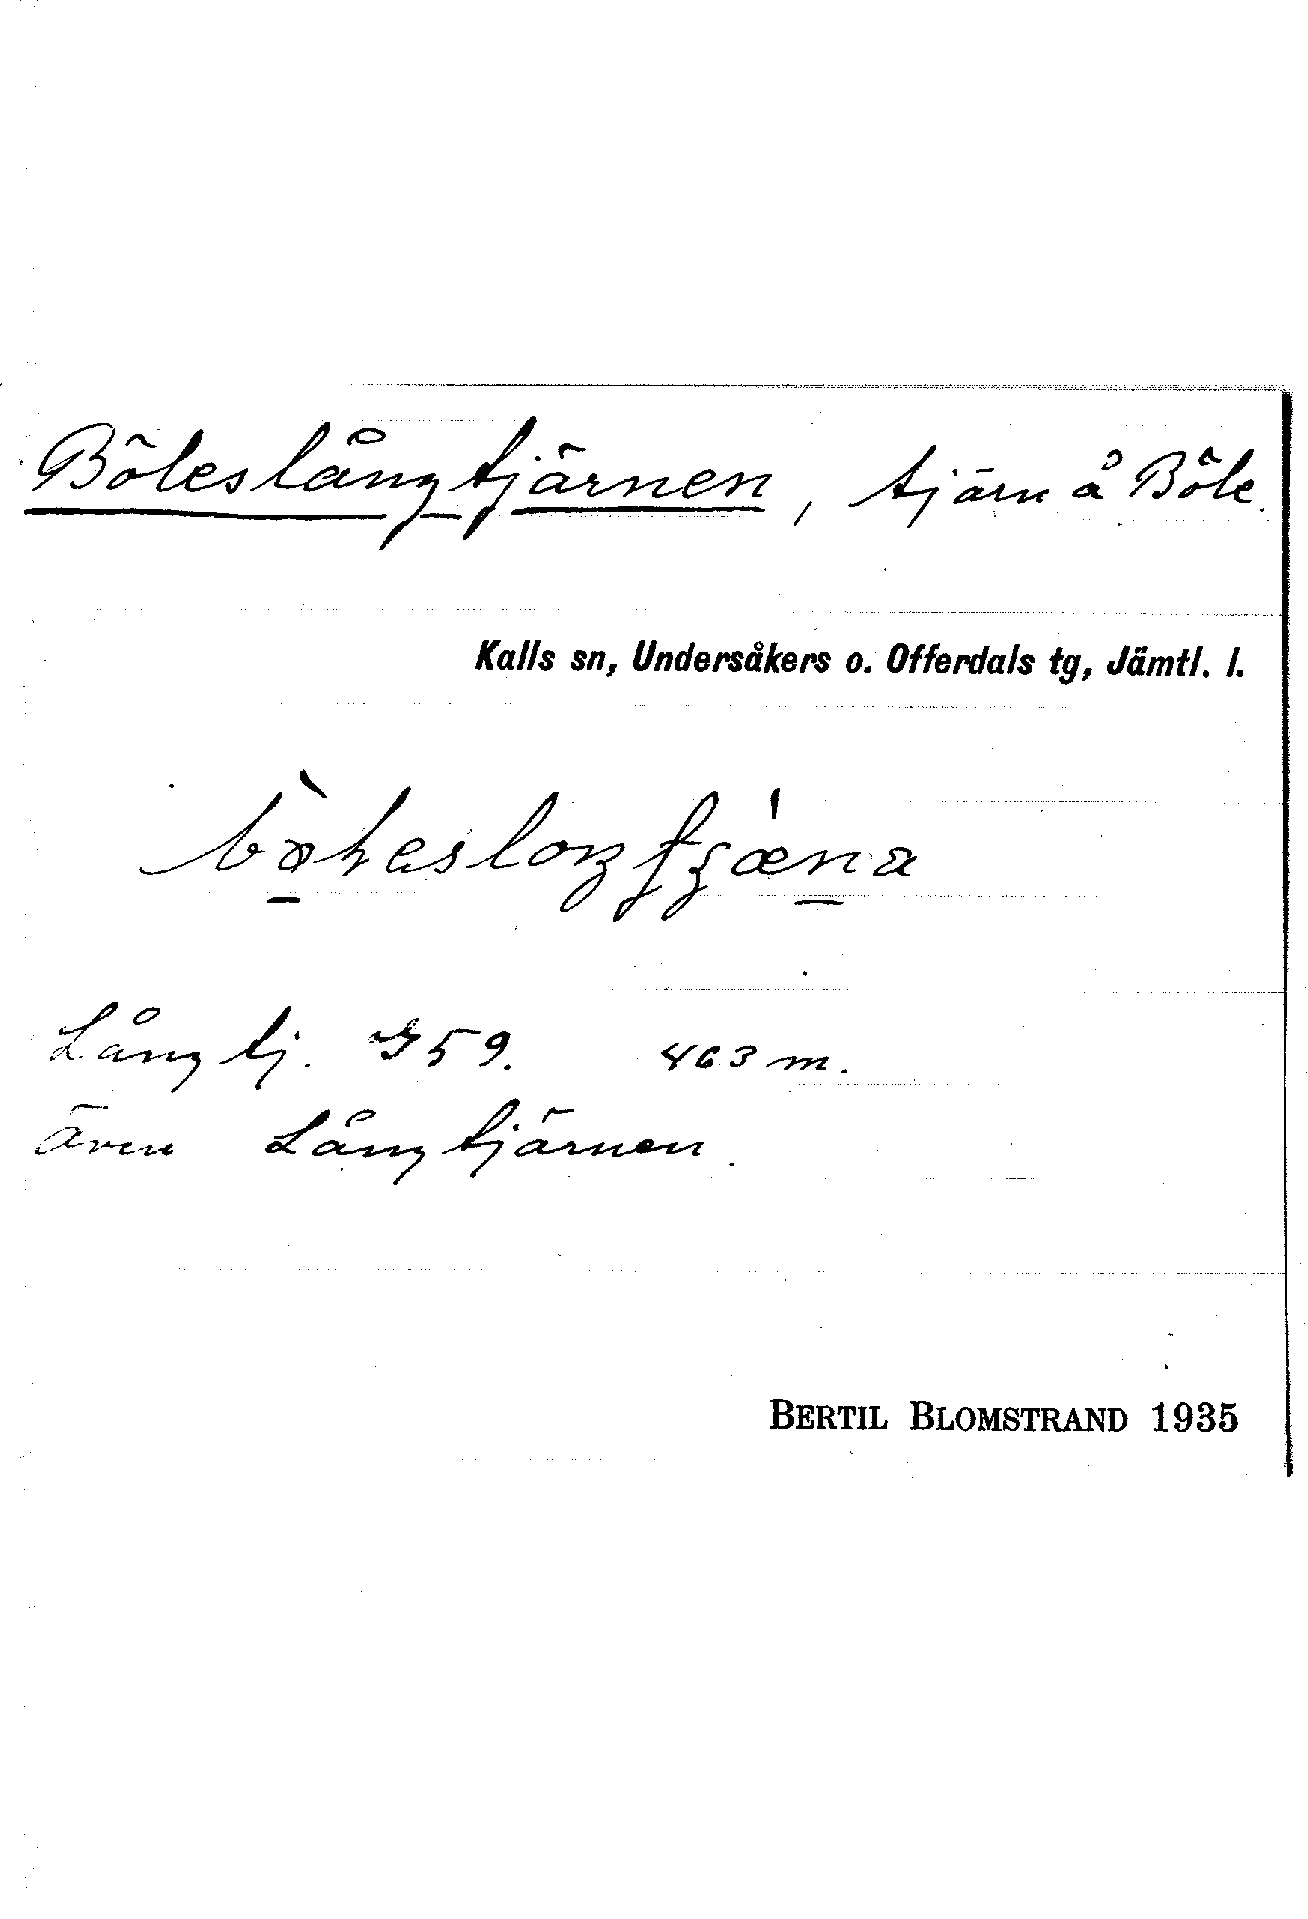 Böleslångtjärnen, tjärn å Böle.
Kalls sn, Undersåkers o. Offerdals tg, Jämtl. l.
Långtj. G59. 463 m.
även Långtjärnen.
BERTIL BLOMSTRAND 1935